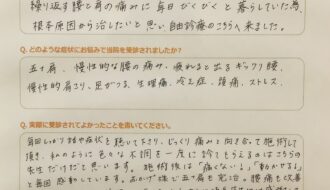 繰り返す腰と肩の痛みに毎日びくびくと暮らしていた為、
根本原因から治したいと思い自由診療のこちらへ来ました。
Q. どのような症状にお悩みで当院を受診されましたか？
五十肩、慢性的な腰の痛み、疲れると出るギックリ腰、
慢性的肩こり、足がつる、生理痛、冷え症、頭痛、ストレス、
Q. 実際に受診されてよかったことを書いてください。
毎回しっかり話や症状を聴いて下さり、じっくり痛みと向き合って施術して
頂き、私のように色々な不調を一度に診てもらえるのはこちらの
先生だけだと思います。施術後は「痛くない！」「動かせる」
と毎回感動しています。おかげ様で五十肩も完治。腰痛も改善